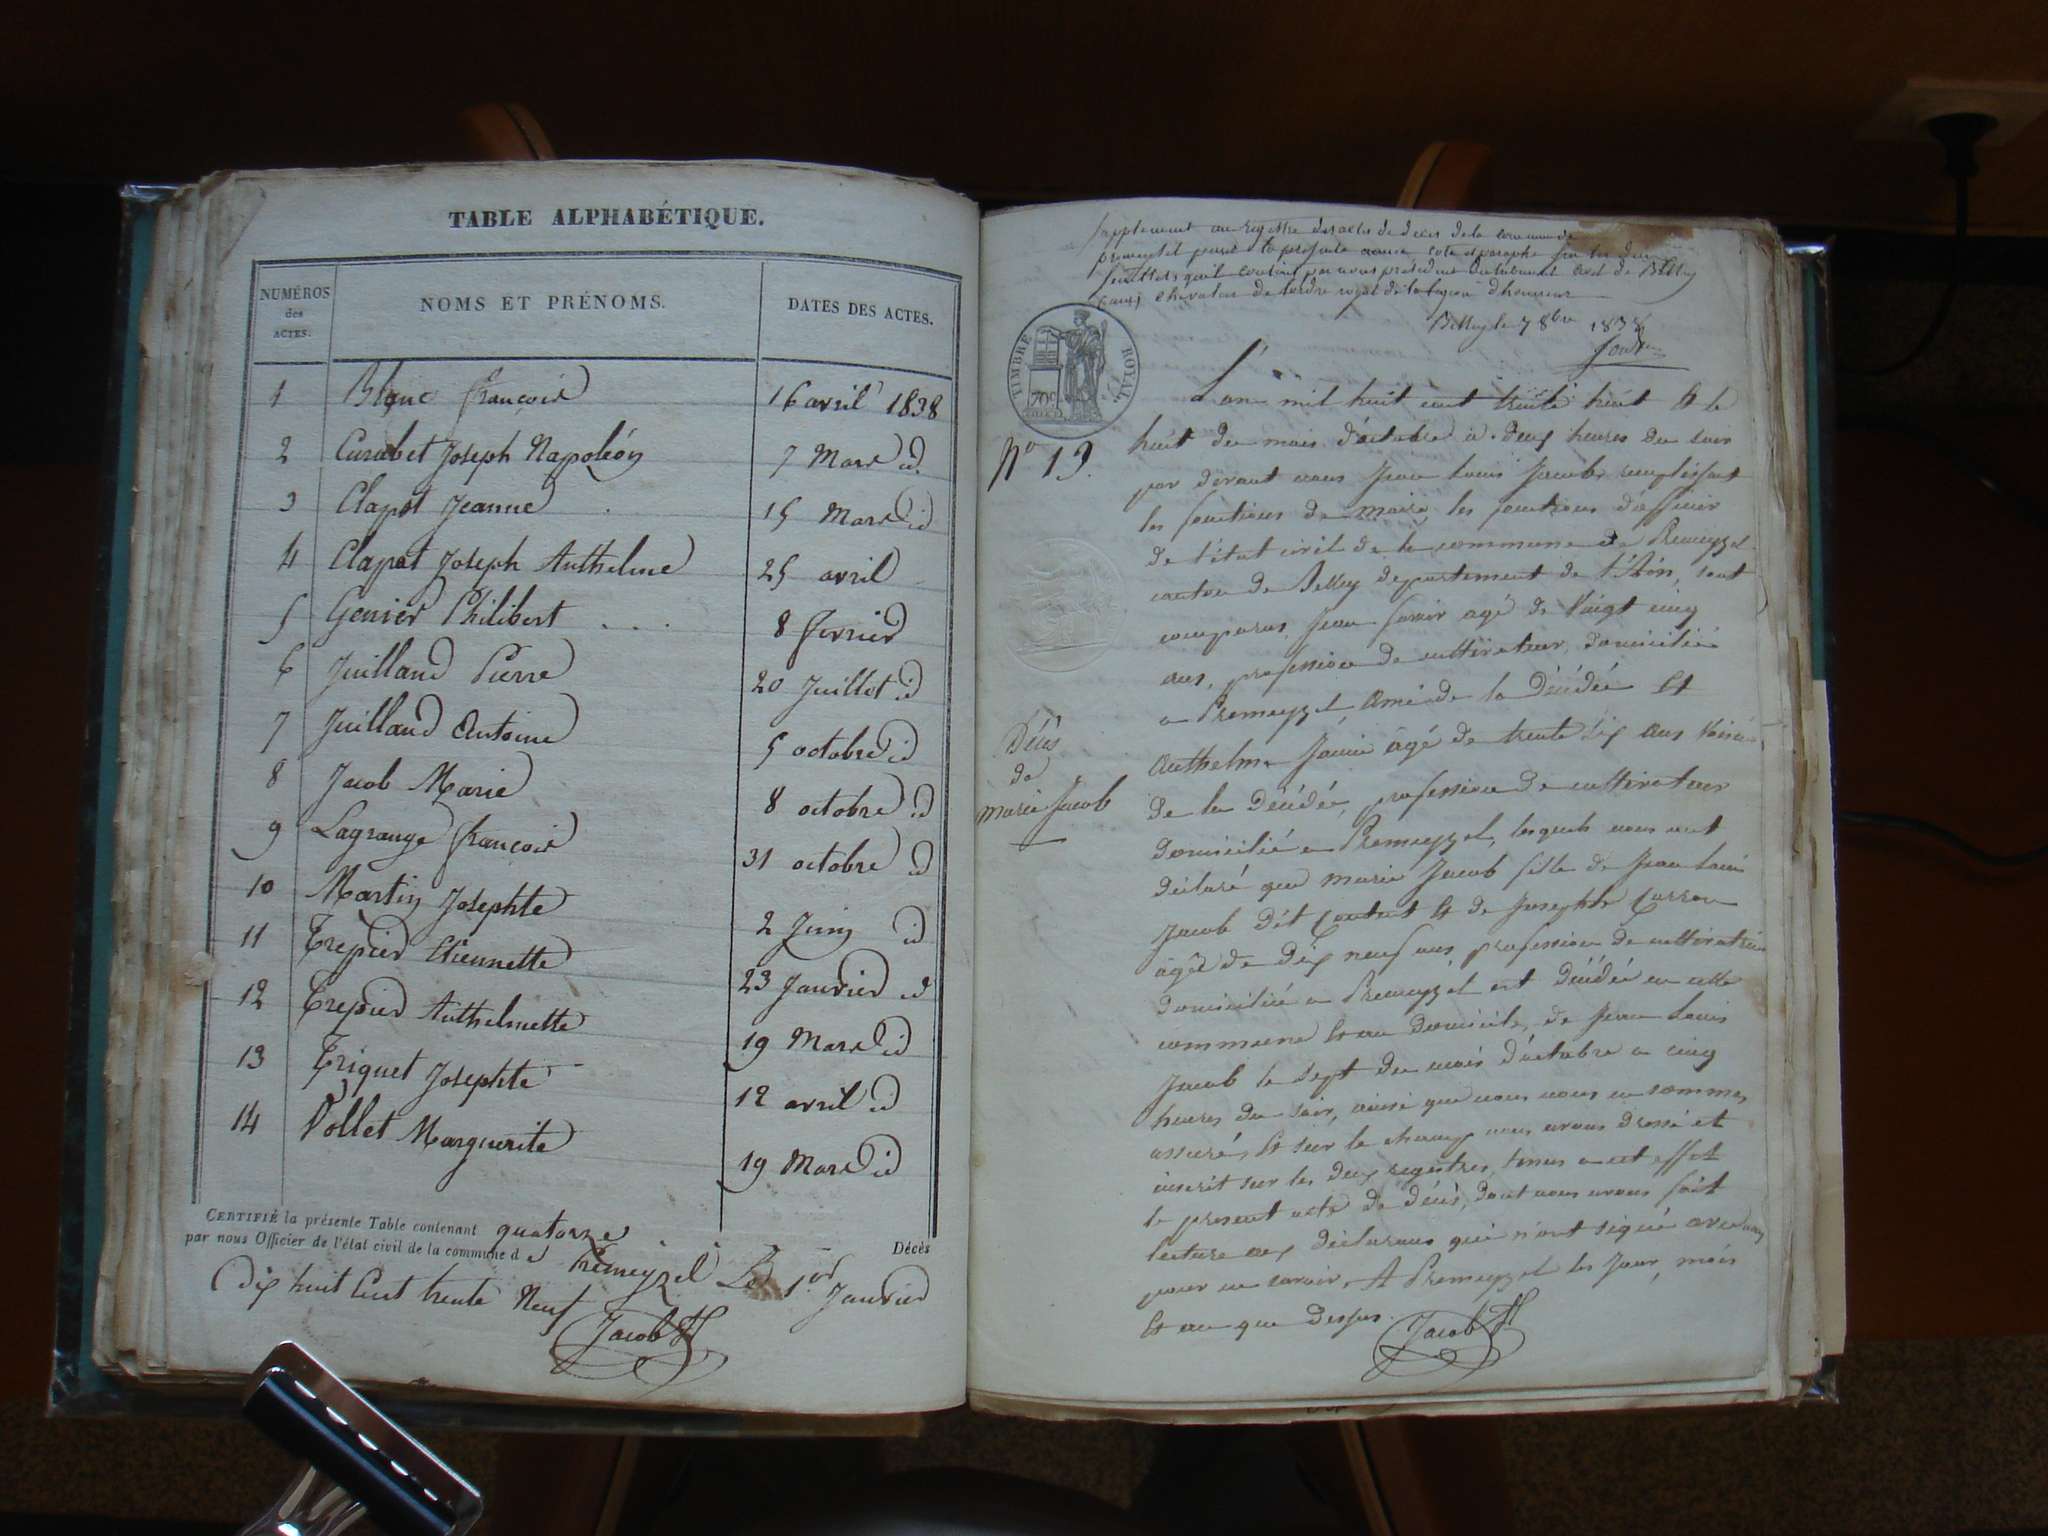 TABLE ALPHABÉTIQUE.
NUMÉROS des ACTES.
NOMS ET PRÉNOMS.
DATES DES ACTES.
1 Blanc françois 16 avril 1838
2 Curabet Joseph Napoléon 7 Mars id
3 Clapot Jeanne 15 Mars id
4 Clapot Joseph Anthelme 25 avril
5 Genier Philibert 8 fevrier
6 Juilland Pierre 20 Juillet id
7 Juilland Antoine 5 octobre id
8 Jacob Marie 8 octobre id
9 Lagrange françois 31 octobre id
10 Martin Josephte 2 Juin id
11 Trepier Etiennette 23 Janvier id
12 Trepier Anthelmette 19 Mars id
13 Triquet Josephte 12 avril id
14 Vollet Marguerite 19 Mars id
CERTIFIÉ la présente Table contenant quatorze Décès
par nous Officier de l'état civil de la commune de Premeyzel Le 1er Janvier
Dix huit Cent trente Neuf
Jacob
supplement au registre des actes de deces de la commune de
premeyzel pour la presente année, coté et paraphé sur les deux
feuillets qu'il contient par nous président du tribunal civil de Belley
(ain) chevalier de l'ordre royal de la légion d'honneur
Belley le 7 8bre 1838
TIMBRE ROYAL
70c
L'an mil huit cent trente huit et le
No 13.
huit du mois d'octobre à deux heures du soir
par devant nous Jean Louis Jacob, remplissant
les fonctions de maire, les fonctions d'officier
de l'état civil de la commune de Premeyzel
canton de Belley departement de l'Ain, sont
comparus, Jean agé de Vingt cinq
ans, profession de cultivateur, domicilié
a Premeyzel, ami de la Décédée et
Anthelme Janin âgé de trente six ans Voisin
Décès
de
marie Jacob
de la Décédée, profession de cultivateur
domicilié a Premeyzel, lesquels nous ont
déclaré que marie Jacob fille de Jean Louis
Jacob dit et de Josephte Carron
âgée de dix neuf ans profession de cultivatrice
domiciliée a Premeyzel est Décédée en cette
commune et au domicile, de Jean Louis
Jacob le sept du mois d'octobre a cinq
heures du soir, ainsi que nous nous en sommes
assuré, et sur le champ nous avons dressé et
inscrit sur les deux registres, tenus a cet effet
le present acte de décès, dont nous avons fait
lecture aux déclarans qui n'ont signé avec nous
pour ne savoir. A Premeyzel les Jour, mois
et an que dessus.
Jacob